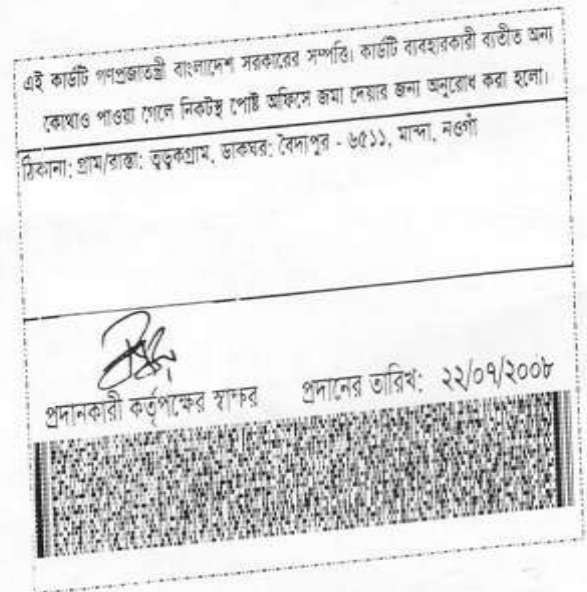 এই কার্ডটি গণপ্রজাতন্ত্রী বাংলাদেশ সরকারের সম্পত্তি। কার্ডটি ব্যবহারকারী ব্যতীত অন্য
কোথাও পাওয়া গেলে নিকটস্থ পোষ্ট অফিসে জমা দেয়ার জন্য অনুরোধ করা হলো।
ঠিকানা: গ্রাম/রাস্তা: তুড়ুকগ্রাম, ডাকঘর: বৈদ্যপুর - ৬৫১১, মান্দা, নওগাঁ
প্রদানকারী কর্তৃপক্ষের স্বাক্ষর প্রদানের তারিখ: ২২/০৭/২০০৮